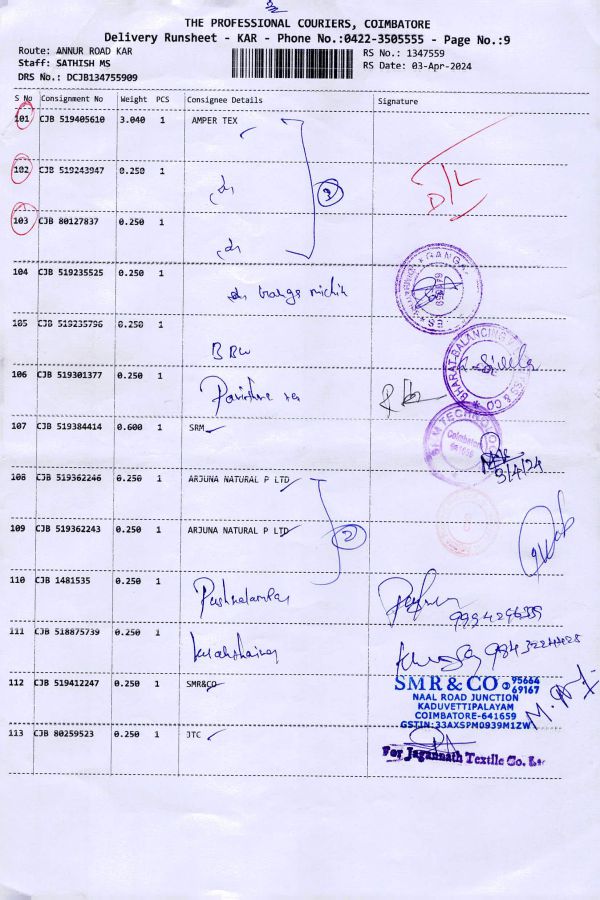 THE PROFESSIONAL COURIERS, COIMBATORE
Delivery Runsheet - KAR - Phone No.:0422-3505555 - Page No.:9
Route: ANNUR ROAD KAR
RS No.: 1347559
Staff: SATHISH MS
RS Date: 03-Apr-2024
DRS No.: DCJB134755909
S No Consignment No Weight PCS Consignee Details Signature
101 CJB 519405610 3.040 1 AMPER TEX
102 CJB 519243947 0.250 1
3
D/L
103 CJB 80127837 0.250 1
104 CJB 519235525 0.250 1
GANGA
105 CJB 519235796 0.250 1
BBW
BHARAT BALANCING
& CO
106 CJB 519301377 0.250 1
107 CJB 519384414 0.600 1 SRM
Coimbatore
3/4/24
108 CJB 519362246 0.250 1 ARJUNA NATURAL P LTD
109 CJB 519362243 0.250 1 ARJUNA NATURAL P LTD
2
110 CJB 1481535 0.250 1
111 CJB 518875739 0.250 1
112 CJB 519412247 0.250 1 SMR&CO
SMR & CO 95664 69167
NAAL ROAD JUNCTION
KADUVETTIPALAYAM
COIMBATORE-641659
GSTIN:33AXSPM0939M1ZW
113 CJB 80259523 0.250 1 JTC
For Jagannath Textile Co. Ltd